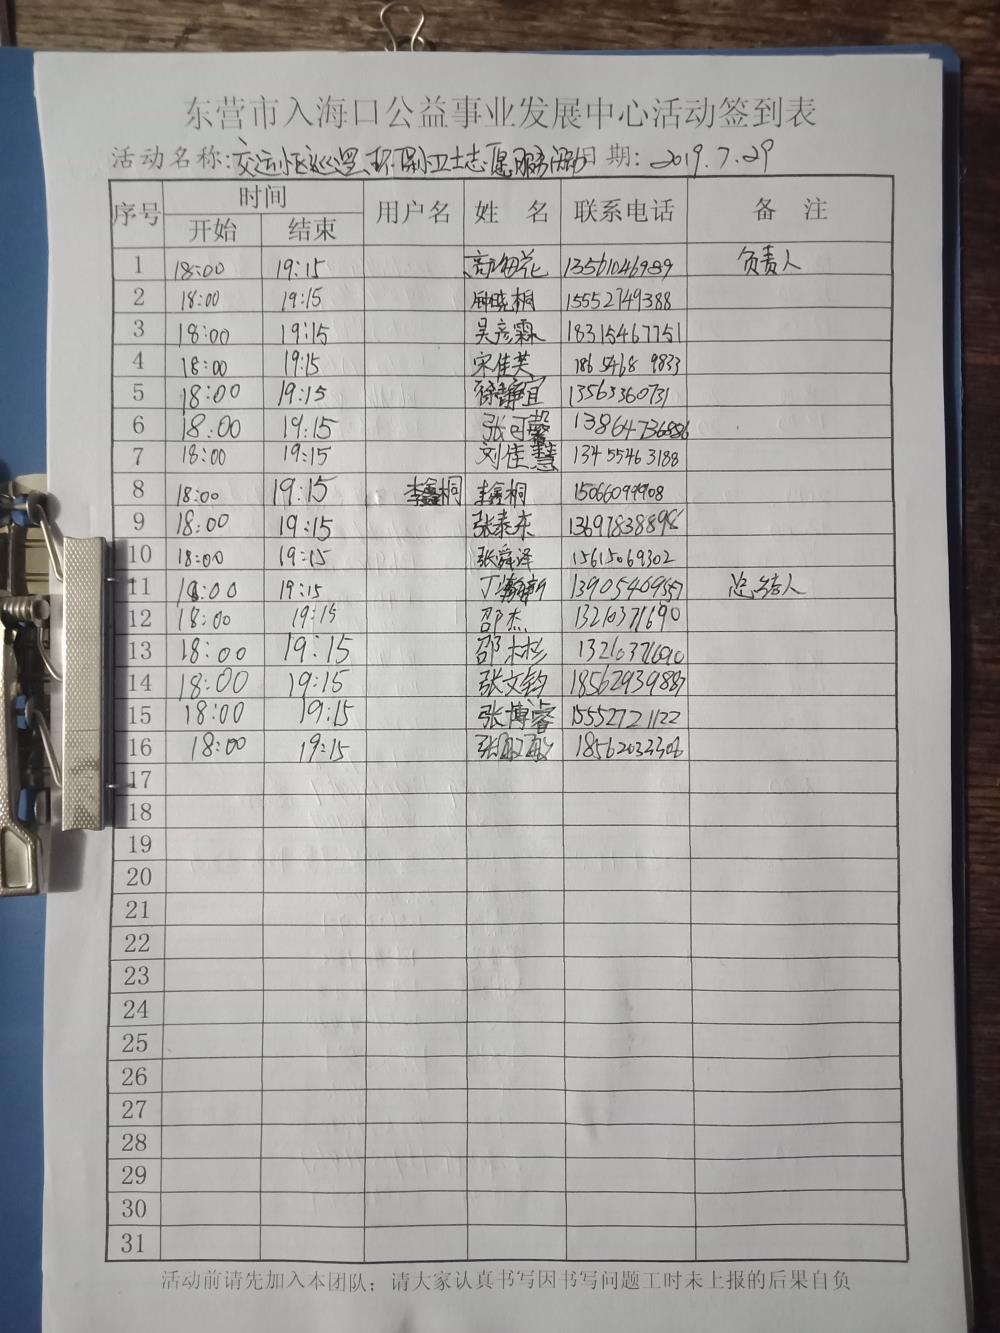 东营市入海口公益事业发展中心活动签到表
活动名称:交运小区巡逻、环保小卫士志愿服务活动日期: 2019.7.29
序号 时间 用户名 姓 名 联系电话 备 注
开始 结束
1 18:00 19:15 13561046939 负责人
2 18:00 19:15 晓桐 15552749388
3 18:00 19:15 吴彦霖 18315467751
4 18:00 19:15 宋佳芙 186 5468 9833
5 18:00 19:15 徐静宜 13563360731
6 18:00 19:15 张可馨 13864736886
7 18:00 19:15 刘佳慧 134 5546 3188
8 18:00 19:15 李鑫桐 李鑫桐 15066099908
9 18:00 19:15 张泰东 13697838896
10 18:00 19:15 张舜泽 15615069302
11 18:00 19:15 丁 13905469557 总结人
12 18:00 19:15 邵杰 13210371690
13 18:00 19:15 邵木杉 13210371690
14 18:00 19:15 张文钧 18562939887
15 18:00 19:15 张博睿 15552721122
16 18:00 19:15 张 18562033306
17
18
19
20
21
22
23
24
25
26
27
28
29
30
31
活动前请先加入本团队；请大家认真书写因书写问题工时未上报的后果自负